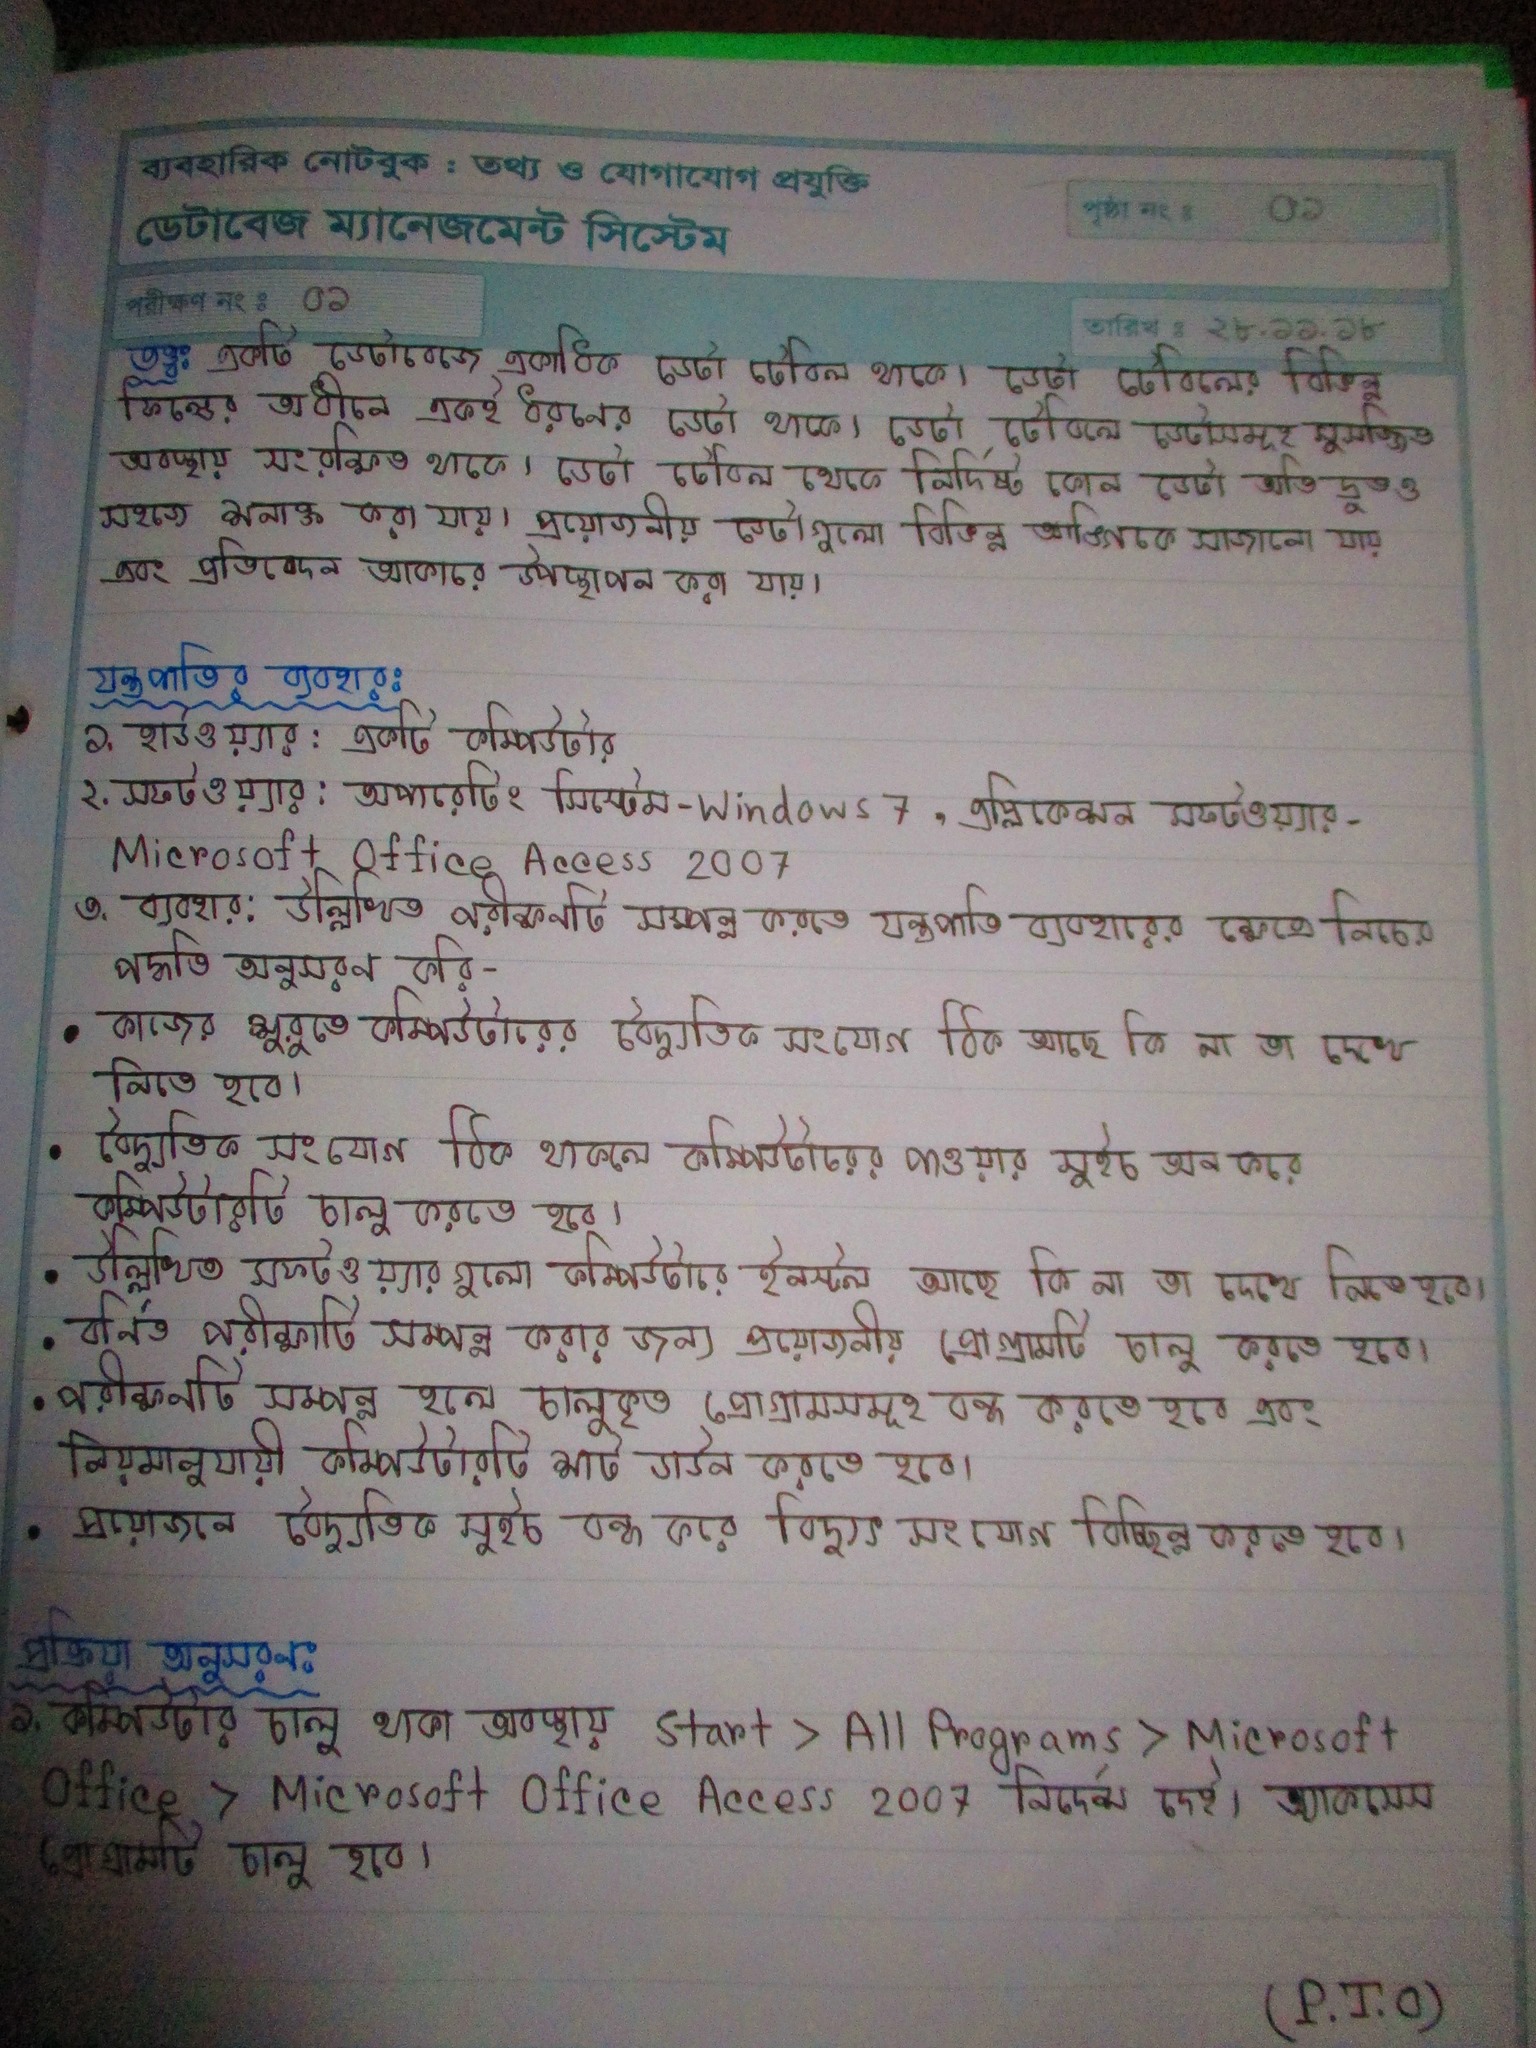 ব্যবহারিক নোটবুক : তথ্য ও যোগাযোগ প্রযুক্তি
ডেটাবেজ ম্যানেজমেন্ট সিস্টেম
পৃষ্ঠা নং : ০১
পরীক্ষণ নং : ০১
তারিখ : ২৮.১১.১৮
তত্ত্বঃ একটি ডেটাবেজে একাধিক ডেটা টেবিল থাকে। ডেটা টেবিলের বিভিন্ন
ফিল্ডের অধীনে একই ধরনের ডেটা থাকে। ডেটা টেবিলে ডেটাসমূহ সুসজ্জিত
অবস্থায় সংরক্ষিত থাকে। ডেটা টেবিল থেকে নির্দিষ্ট কোন ডেটা অতি দ্রুত ও
সহজে শনাক্ত করা যায়। প্রয়োজনীয় ডেটাগুলো বিভিন্ন আঙ্গিকে সাজানো যায়
এবং প্রতিবেদন আকারে উপস্থাপন করা যায়।
যন্ত্রপাতির ব্যবহারঃ
১. হার্ডওয়্যার : একটি কম্পিউটার
২. সফটওয়্যার : অপারেটিং সিস্টেম - Windows 7 , এপ্লিকেশন সফটওয়্যার -
Microsoft Office Access 2007
৩. ব্যবহার : উল্লিখিত পরীক্ষনটি সম্পন্ন করতে যন্ত্রপাতি ব্যবহারের ক্ষেত্রে নিচের
পদ্ধতি অনুসরণ করি -
• কাজের শুরুতে কম্পিউটারের বৈদ্যুতিক সংযোগ ঠিক আছে কি না তা দেখে
নিতে হবে।
• বৈদ্যুতিক সংযোগ ঠিক থাকলে কম্পিউটারের পাওয়ার সুইচ অন করে
কম্পিউটারটি চালু করতে হবে।
• উল্লিখিত সফটওয়্যারগুলো কম্পিউটারে ইনস্টল আছে কি না তা দেখে নিতে হবে।
• বর্নিত পরীক্ষাটি সম্পন্ন করার জন্য প্রয়োজনীয় প্রোগ্রামটি চালু করতে হবে।
• পরীক্ষনটি সম্পন্ন হলে চালুকৃত প্রোগ্রামসমূহ বন্ধ করতে হবে এবং
নিয়মানুযায়ী কম্পিউটারটি শাট ডাউন করতে হবে।
• প্রয়োজনে বৈদ্যুতিক সুইচ বন্ধ করে বিদ্যুৎ সংযোগ বিচ্ছিন্ন করতে হবে।
প্রক্রিয়া অনুসরনঃ
১. কম্পিউটার চালু থাকা অবস্থায় Start > All Programs > Microsoft
Office > Microsoft Office Access 2007 নির্দেশ দেই। অ্যাকসেস
প্রোগ্রামটি চালু হবে।
(P.T.O)